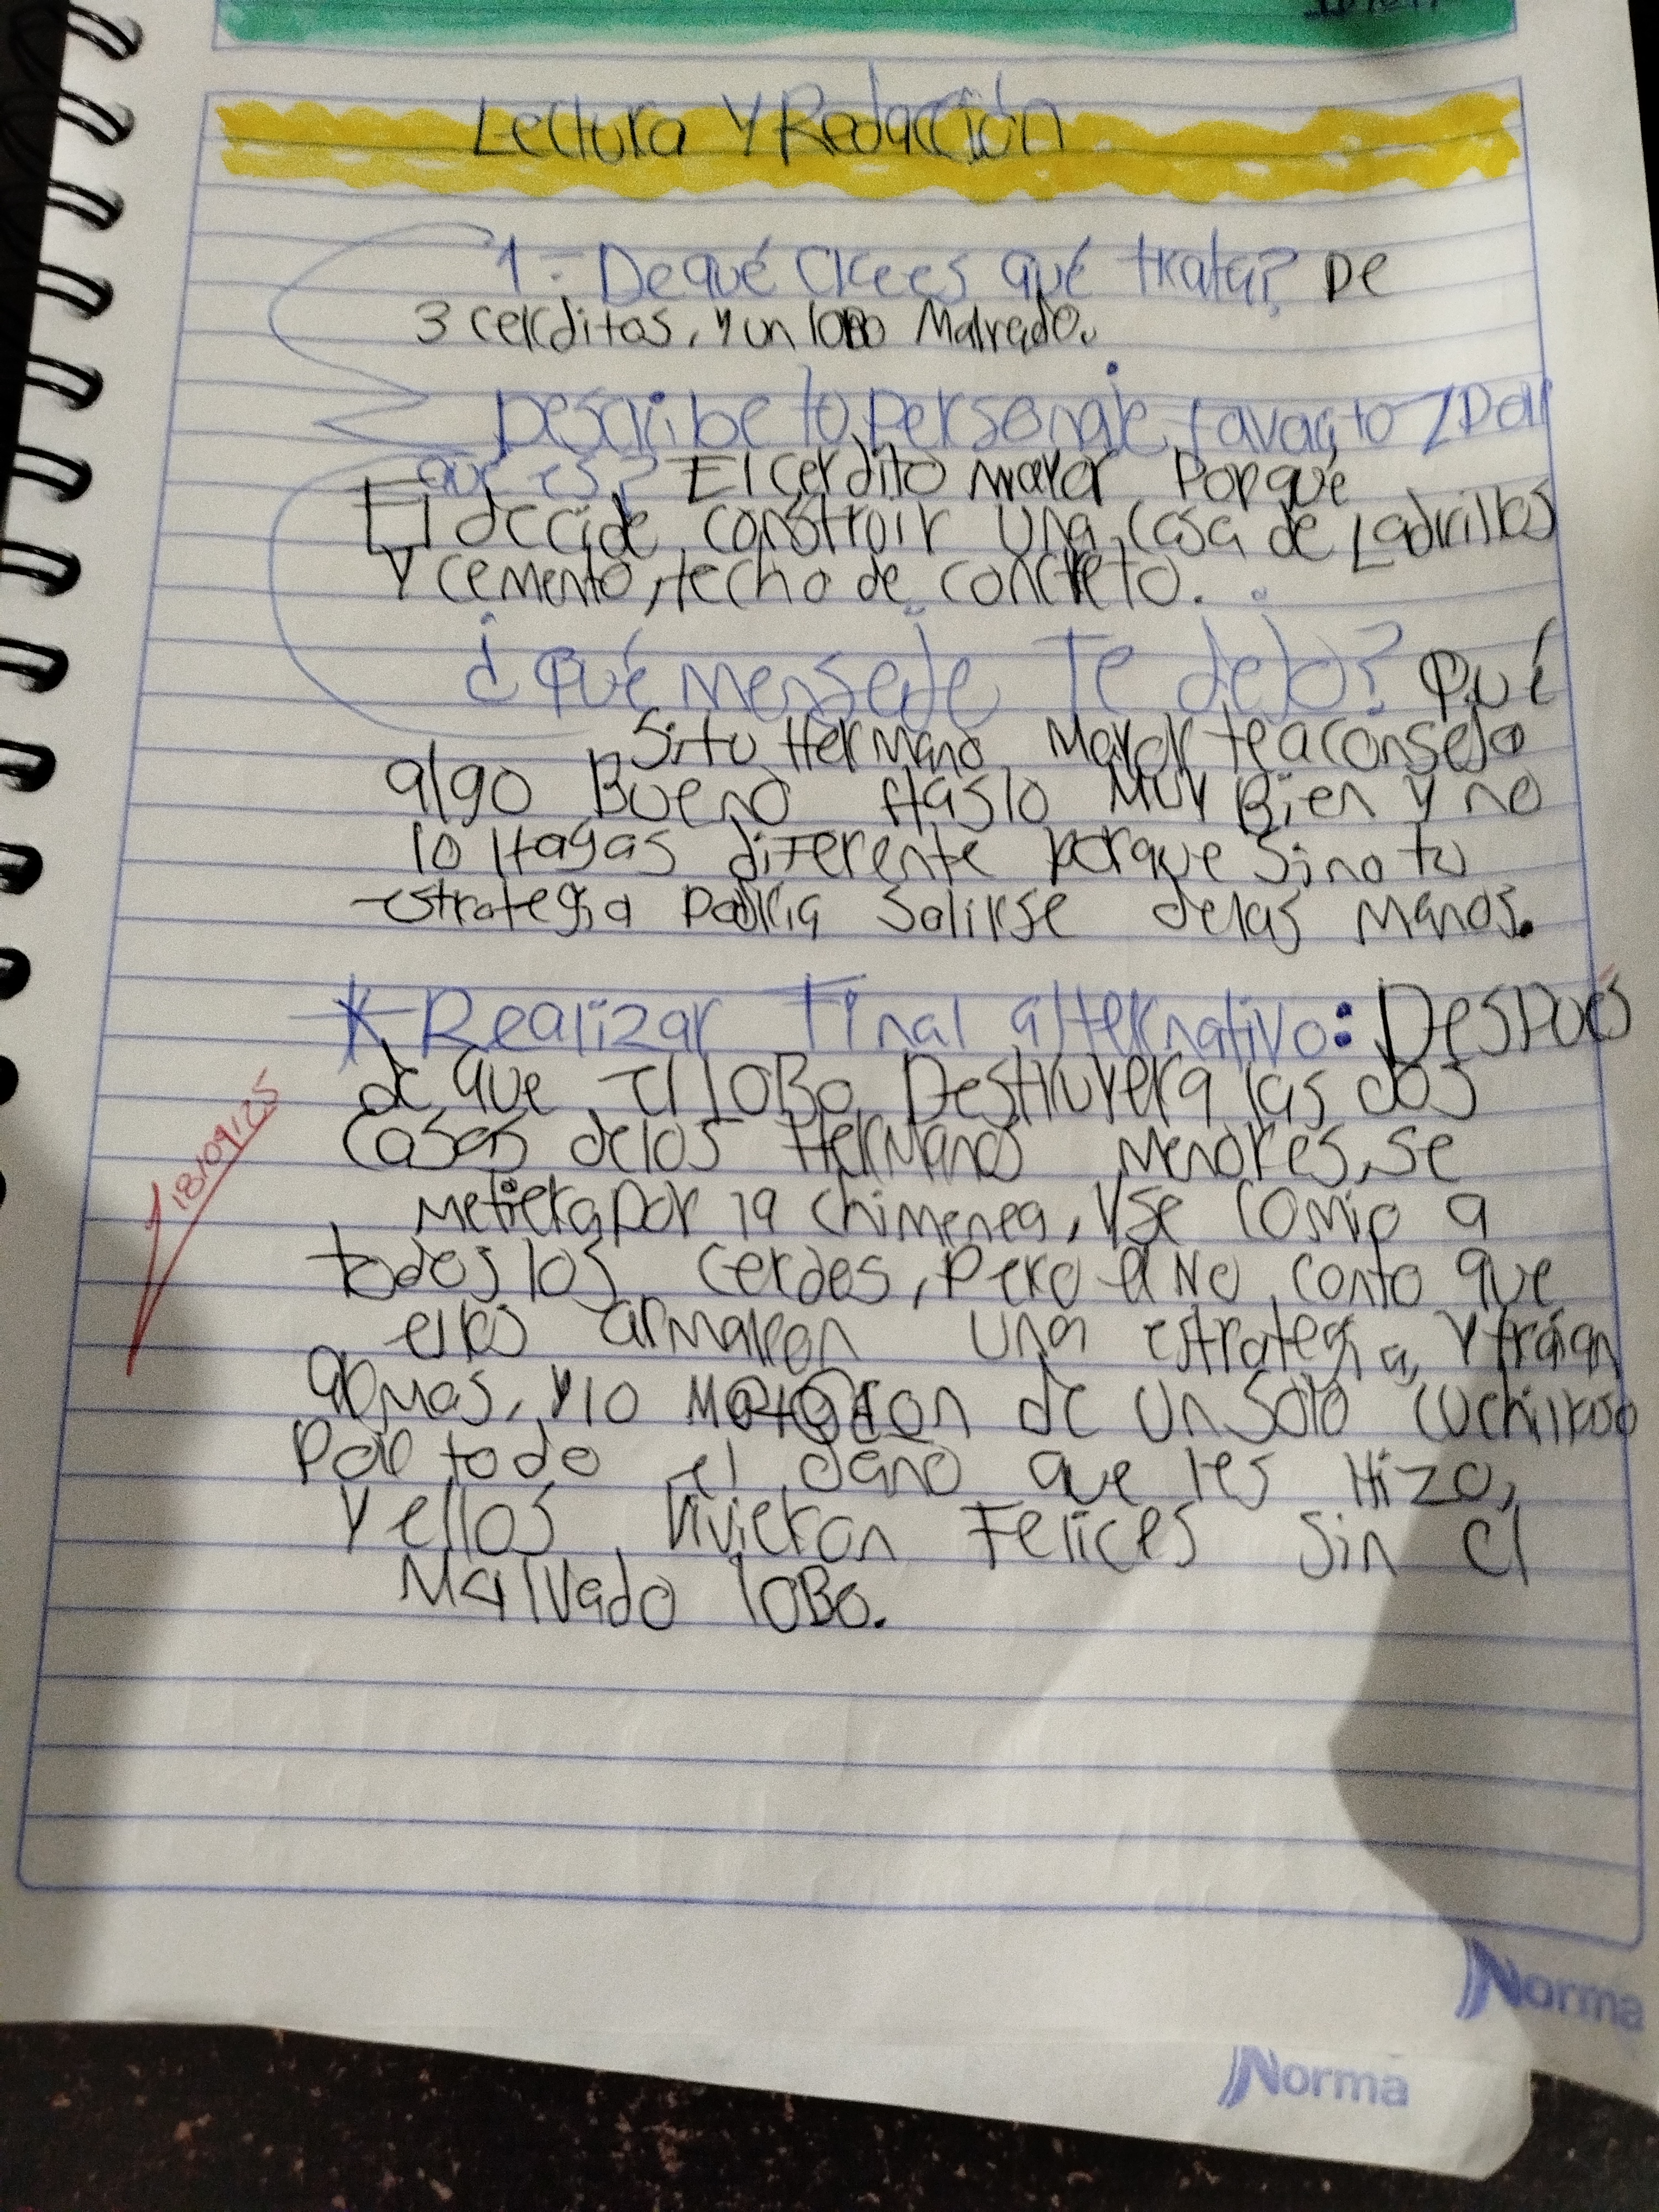 Lectura Y Redacción
1.- De qué crees qué trata? De
3 cerditos, y un lobo Malvado.
Describe tu personaje favorito / Por
que es? El cerdito mayor Porque
El decide construir una casa de Ladrillos
Y cemento, techo de concreto.
¿qué mensaje Te dejo? Qué
Si tu Hermano Mayor te aconseja
algo Bueno Haslo Muy Bien y no
lo Hagas diferente porque sino tu
estrategia Podria Salirse delas Manos.
* Realizar Final alternativo: Después
de que El loBo Destruyera las dos
Casas delos Hermanos Menores, se
Metiera por la chimenea, y se comio a
todos los cerdos, Pero el No conto que
ellos armaron una estrategia, Y traian
armas, y lo Mataron de un Solo cuchillaso
Por todo el daño que les Hizo,
Y ellos Vivieron Felices sin el
Malvado loBo.
18/09/25
Norma
Norma